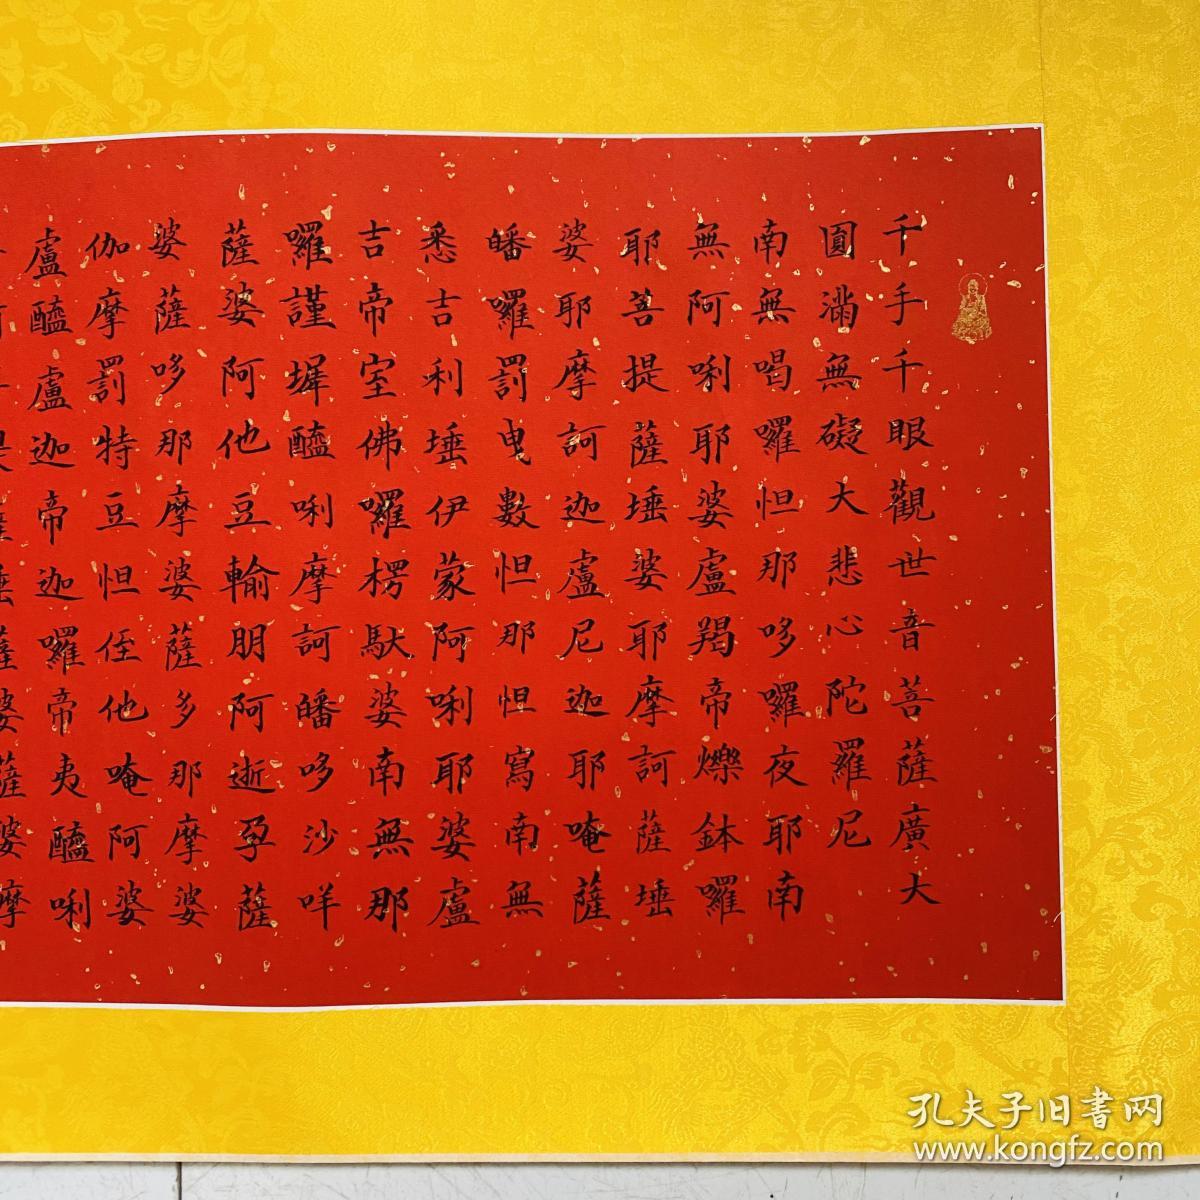 千手千眼觀世音菩薩廣大
圓滿無礙大悲心陀羅尼
南無喝囉怛那哆囉夜耶南
無阿唎耶婆盧羯帝爍鉢囉
耶菩提薩埵婆耶摩訶薩埵
婆耶摩訶迦盧尼迦耶唵薩
皤囉罰曳數怛那怛寫南無
悉吉利埵伊蒙阿唎耶婆盧
吉帝室佛囉楞馱婆南無那
囉謹墀醯唎摩訶皤哆沙咩
薩婆阿他豆輸朋阿逝孕薩
婆薩哆那摩婆薩多那摩婆
伽摩罰特豆怛侄他唵阿婆
盧醯盧迦帝迦囉帝夷醯唎
薩埵薩婆薩婆摩
孔夫子旧書网
www.kongfz.com